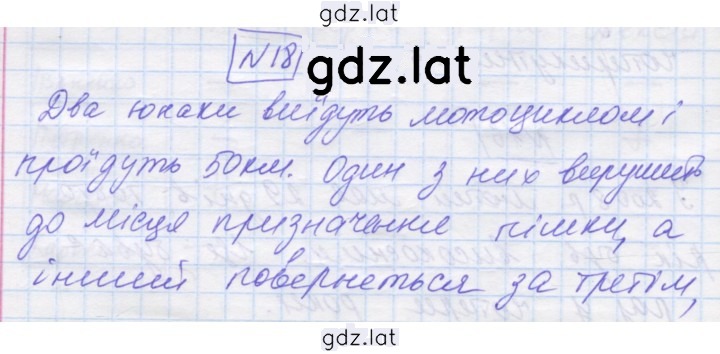 gdz.lat
N 18
gdz.lat
Два юнаки виїдуть мотоциклом і
проїдуть 50км. Один з них вирушить
до місця призначення пішки, а
інший повернеться за третім,
gdz.lat